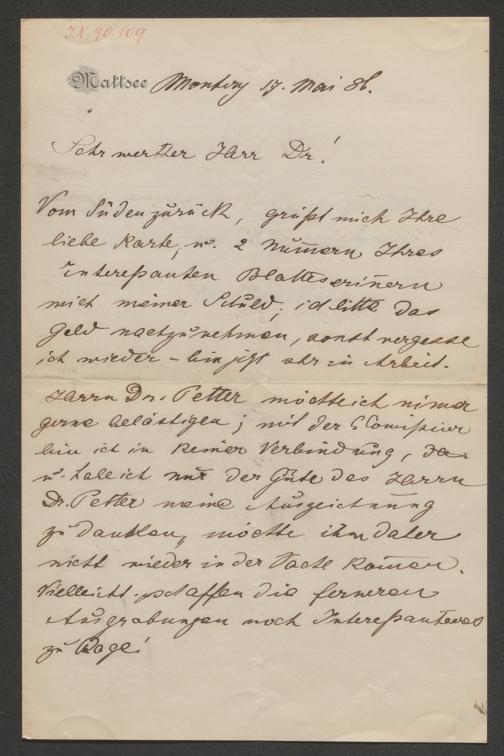 I.N. 90.109
Mattsee Montag 17. Mai 86.
Sehr werther Herr Dr!
Vom Süden zurück, grüßt mich Ihre
liebe Karte, u. 2 Numern Ihres
Interessanten Blattes erinern
mich meiner Schuld; ich bitte das
Geld nachzunehmen, sonst vergesse
ich wieder – bin jetzt sehr in Arbeit.
Herrn Dr. Petter möchte ich nimer
gerne belästigen; mit der
bin ich in keiner Verbindung,
u. habe ich nur der Güte des Herrn
Dr. Petter meine Auszeichnung
zu danken, möchte ihm daher
nicht wieder in der Sache komen.
Vielleicht schaffen die ferneren
Ausgrabungen noch Interessanteres
zu Tage!